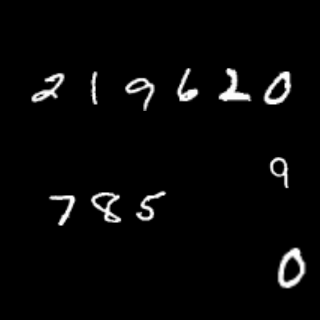 219620
9
785
0